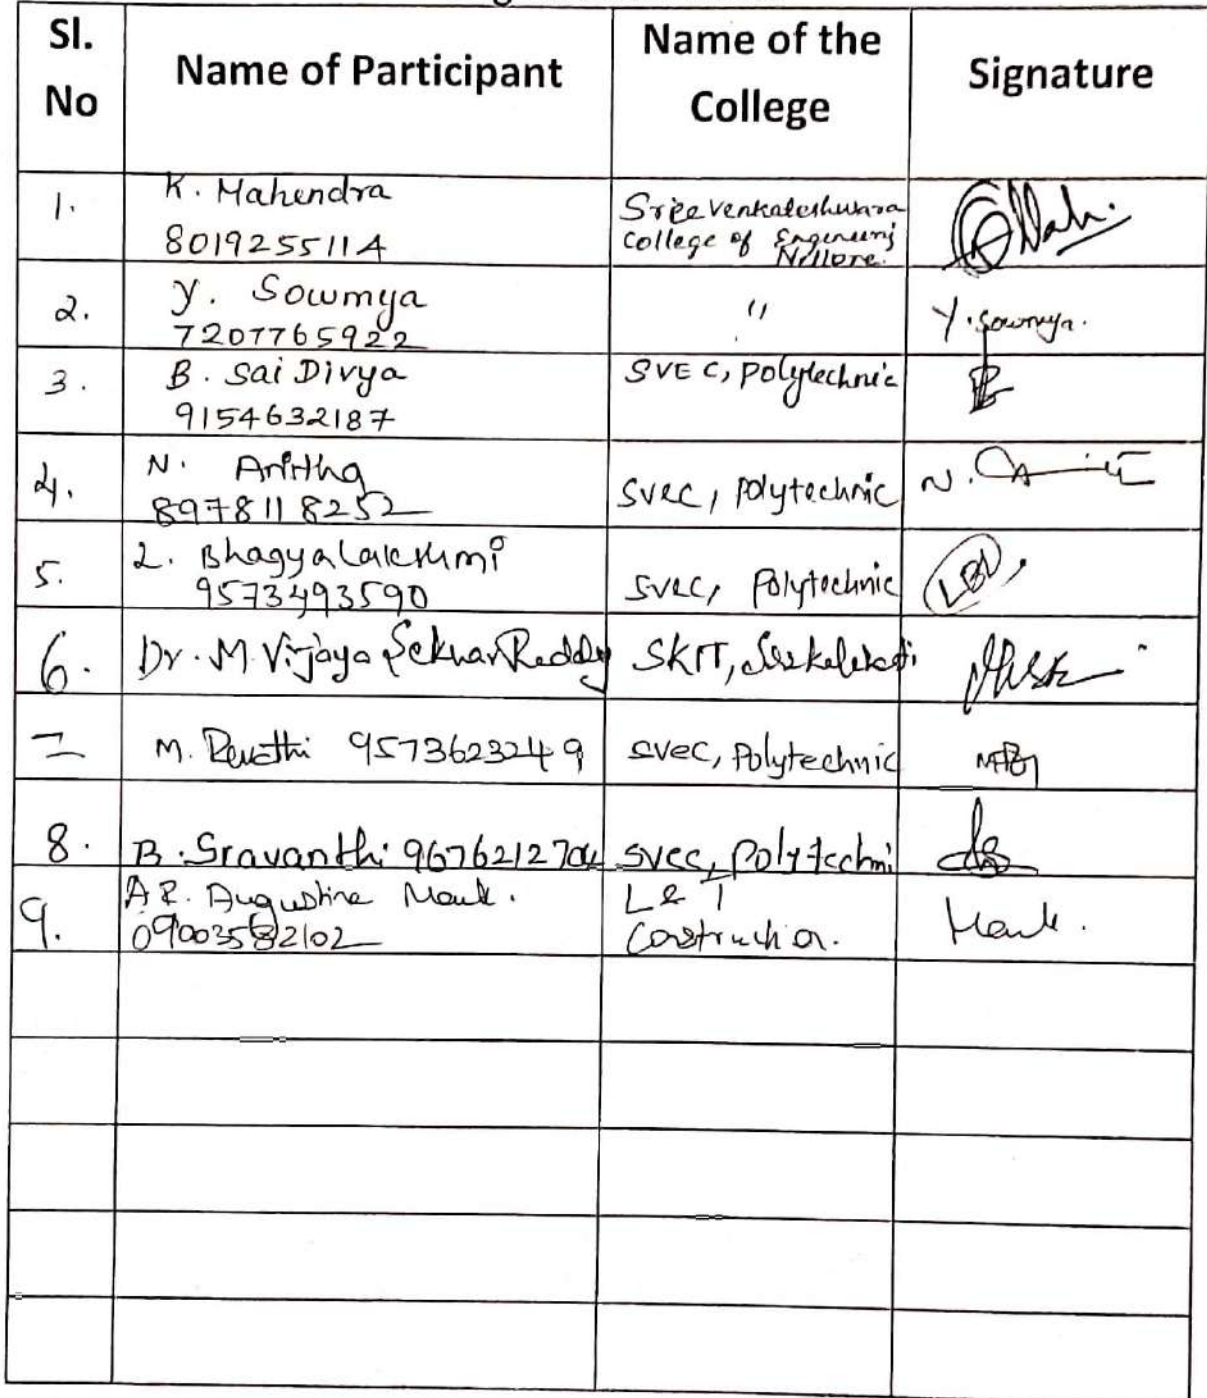 Sl. No
Name of Participant
Name of the College
Signature
1.
K. Mahendra
8019255114
Sree Venkateshwara
College of Engineering
Nellore.
2.
Y. Sowmya
7207765922
"
Y. Sowmya.
3.
B. Sai Divya
9154632187
SVEC, polytechnic
4.
N.
8978118252
svec, polytechnic
N.
5.
L. Bhagyalakshmi
9573493590
svec, polytechnic
LBL,
6.
Dr. M. Vijaya Sekhar Reddy
SKIT,
7
M. Revathi 9573623249
svec, polytechnic
8.
B. Sravanthi 9676212704
svec, polytechni
9.
A R. Augustine Mark.
09003582102
L & T
Construction.
Mark.